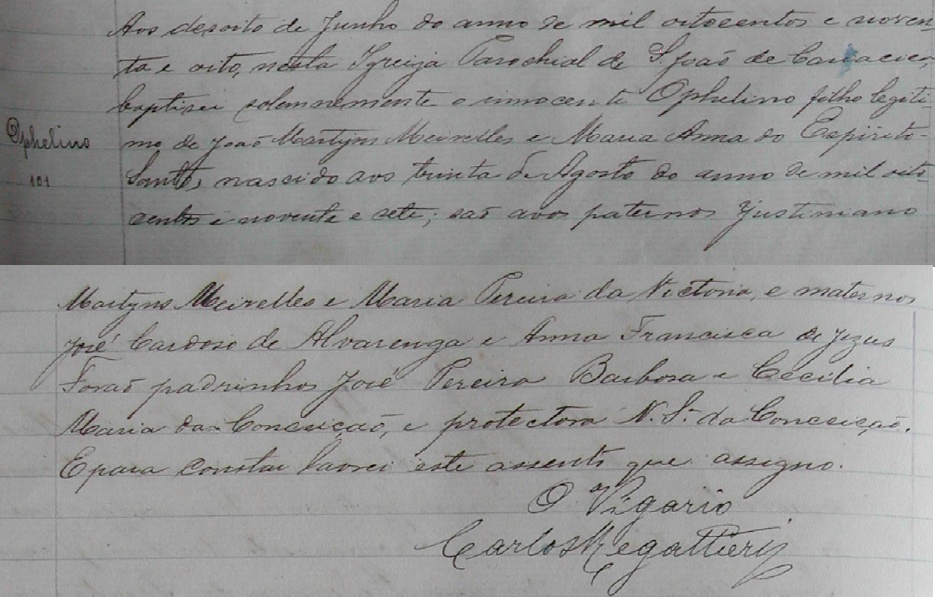 Aos desoito de Junho do anno de mil oitocentos e noven-
ta e oito, nesta Igreija Parochial de S. João de Cariacica,
baptisei solemnemente o innocente Ophelino filho legiti-
Ophelino
mo de João Martyns Meirelles e Maria Anna do Espirito-
101
Santo, nascido aos trinta de Agosto do anno de mil oito-
centos e noventa e sete; são avos paternos Justiniano
Martyns Meirelles e Maria Pereira da Victoria, e maternos
José Cardoso de Alvarenga e Anna Francisca de Jezus
Forão padrinhos José Pereira Barbosa e Cecilia
Maria da Conceição, e protectora N. Sª da Conceição.
E para constar lavrei este assento que assigno.
O Vigario
Carlos Regattieri